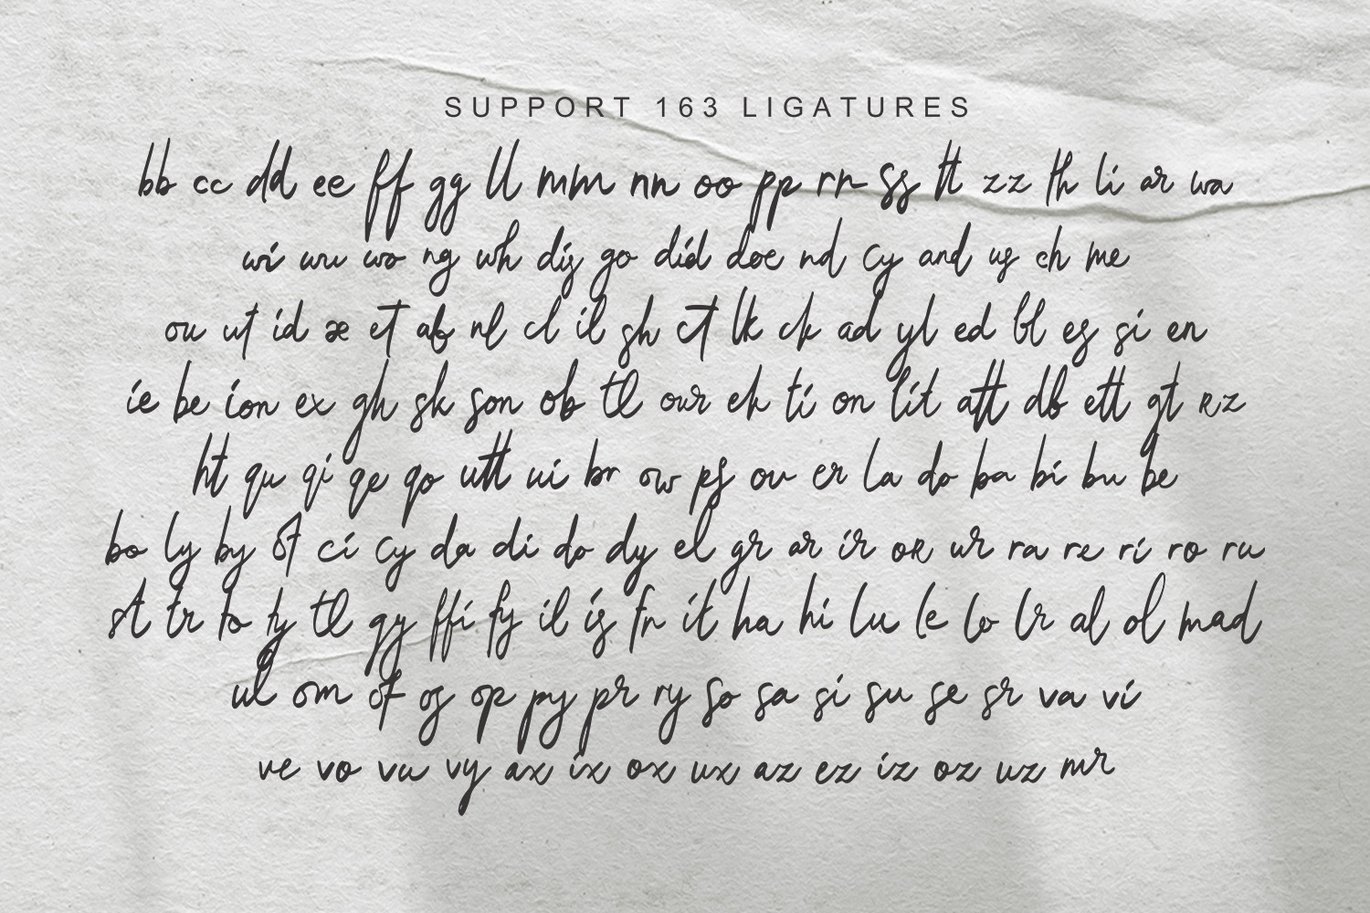 SUPPORT 163 LIGATURES
bb cc dd ee ff gg ll mm nn oo pp rr ss tt zz th li ar wa
wi wu wo ng wh dis go did doe nd cy and us ch me
ou ut id æ et ab nl cl il sh ct lk ck ad yl ed bl es si en
ie be ion ex gh sk son ob tl our eh ti on lit att db ett gt rz
ht qu qi qe qo utt ui br ow ps ov er la do ba bi bu be
bo ly by ci cy da di do dy el gr ar ir or ur ra re ri ro ru
st tr to ty tl gy ffi fy il is fn it ha hi lu le lo lr al ol mad
ul om of os op py pr ry so sa si su se sr va vi
ve vo vu vy ax ix ox ux az ez iz oz uz mr